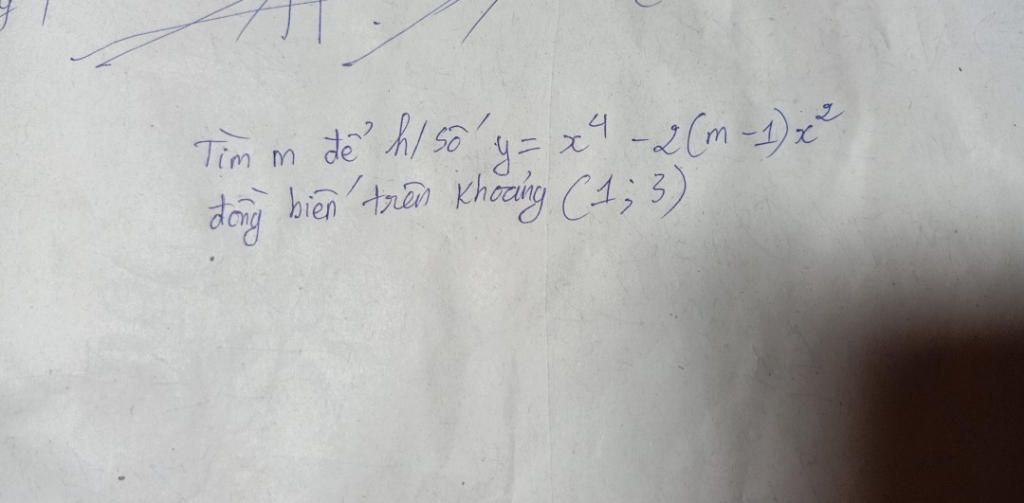 Tìm m để h/số y = x⁴ - 2(m - 1)x²
đồng biến trên khoảng (1; 3)